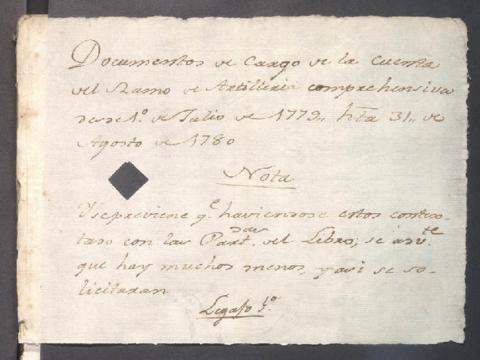 Documentos de Cargo de la Cuenta
del Ramo de Artilleria comprehensiva
desde 1º de Julio de 1779,, hta 31,, de
Agosto de 1780
Nota
Y se previene qe haviendose estos contex-
tado con las Partdas del Libro; se advte
que hay muchos menos, y asi se so-
licitaran
Legajo 1º